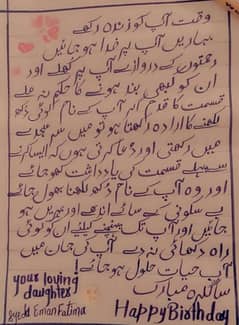 وقت آپ کو زندہ رکھے
بہاریں آپ پر فدا ہو جائیں
رحمتوں کے دروازے آپ پر کھلے اور
ان کو کبھی بند ہونے کا حکم نہ ملے
قسمت کا قلم اگر آپ کے نام کوئی دکھ
لکھنے کا ارادہ رکھتا ہو تو میں سجدے
میں رکھتی اور دعا کرتی ہوں کہ ایسا کرنے
سے پہلے قسمت کی یادداشت کھو جائے
اور وہ آپ کے نام دکھ لکھنا بھول جائے
بے سکونی کے سائے اندھے اور بہرے ہو
جائیں اور آپ تک پہنچنے کیلئے ان کو کوئی
راہ دکھائی نہ دے آپ کی جان میں
آب حیات حلول ہو جائے!
سالگرہ مبارک
your loving
daughter!
Syeda Eman Fatima
Happy Birthday